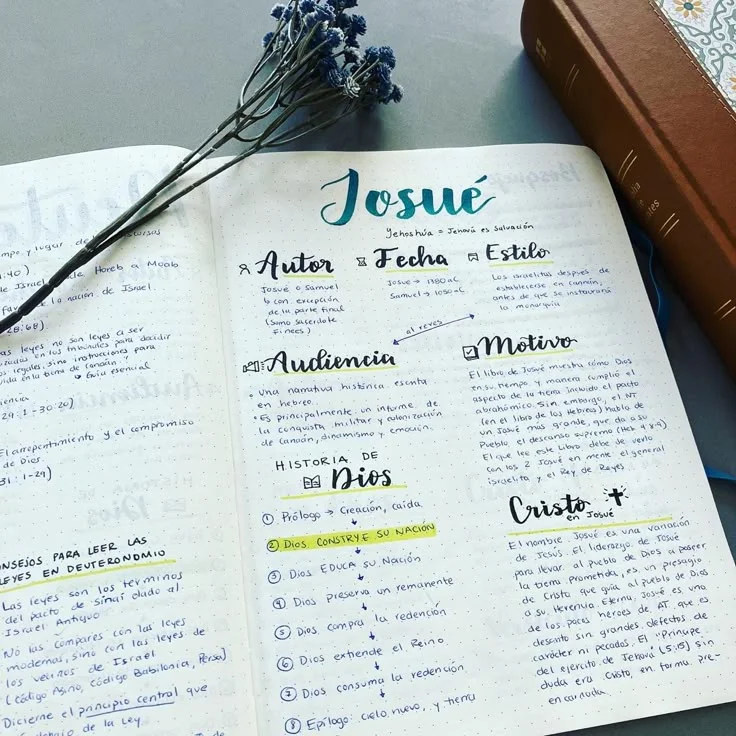 tiempo y lugar
1:40)
de Israel de Horeb a Moab
la nación de Israel.
28:68)
las leyes no son leyes a ser
en los tribunales para decidir
legales, sino instrucciones para
vida en la tierra de canaán
↳ Guía esencial
29:1-30:20)
El arrepentimiento y el compromiso
de Dios.
31:1-29)
CONSEJOS PARA LEER LAS
LEYES EN DEUTERONOMIO
Las leyes son los términos
del pacto de sinaí dado al
Israel Antiguo
No las compares con las leyes
modernas, sino con las leyes de
los vecinos de Israel
(código Asirio, código Babilonia, Persa)
Dicierne el principio central que
debajo de la Ley.
Josué
Yehoshúa = Jehová es Salvación
Autor
Josué o Samuel
↳ con excepción
de la parte final
(Sumo sacerdote
Finees)
Fecha
Josué → 1380 aC
Samuel → 1050 aC
Estilo
Los israelitas después de
establecerse en canaán,
antes de que se instaurará
la monarquía
al revés
Audiencia
• Una narrativa histórica escrita
en hebreo.
• Es principalmente un informe de
la conquista militar y colonización
de canaán, dinamismo y emoción.
Motivo
El libro de Josué muestra cómo Dios
en su tiempo y manera cumplió el
aspecto de la tierra incluido el pacto
abrahámico. Sin embargo, el NT
(en el libro de los Hebreos) habla de
un Josué más grande, que da a su
Pueblo el descanso supremo (Heb 4:8 y 9)
El que lee este Libro, debe de verlo
con los 2 Josué en mente, el general
israelita y el Rey de Reyes.
HISTORIA DE
Dios
① Prólogo → Creación, caída
② Dios CONSTRYE SU NACIÓN
③ Dios EDUCA su Nación
④ Dios preserva un remanente
⑤ Dios compra la redención
⑥ Dios extiende el Reino
⑦ Dios consuma la redención
⑧ Epílogo: cielo nuevo, y tierra
Cristo
en Josué
El nombre Josué es una variación
de Jesús. El liderazgo de Josué
para llevar al pueblo de Dios a poseer
la tierra prometida, es un presagio
de Cristo que guía al pueblo de Dios
a su Herencia Eterna, Josué es una
de los pocos héroes de AT. que es
descrito sin grandes defectos de
carácter ni pecados. El "Príncipe
del ejército de Jehová (5:15) sin
duda era Cristo, en forma pre-
encarnada.